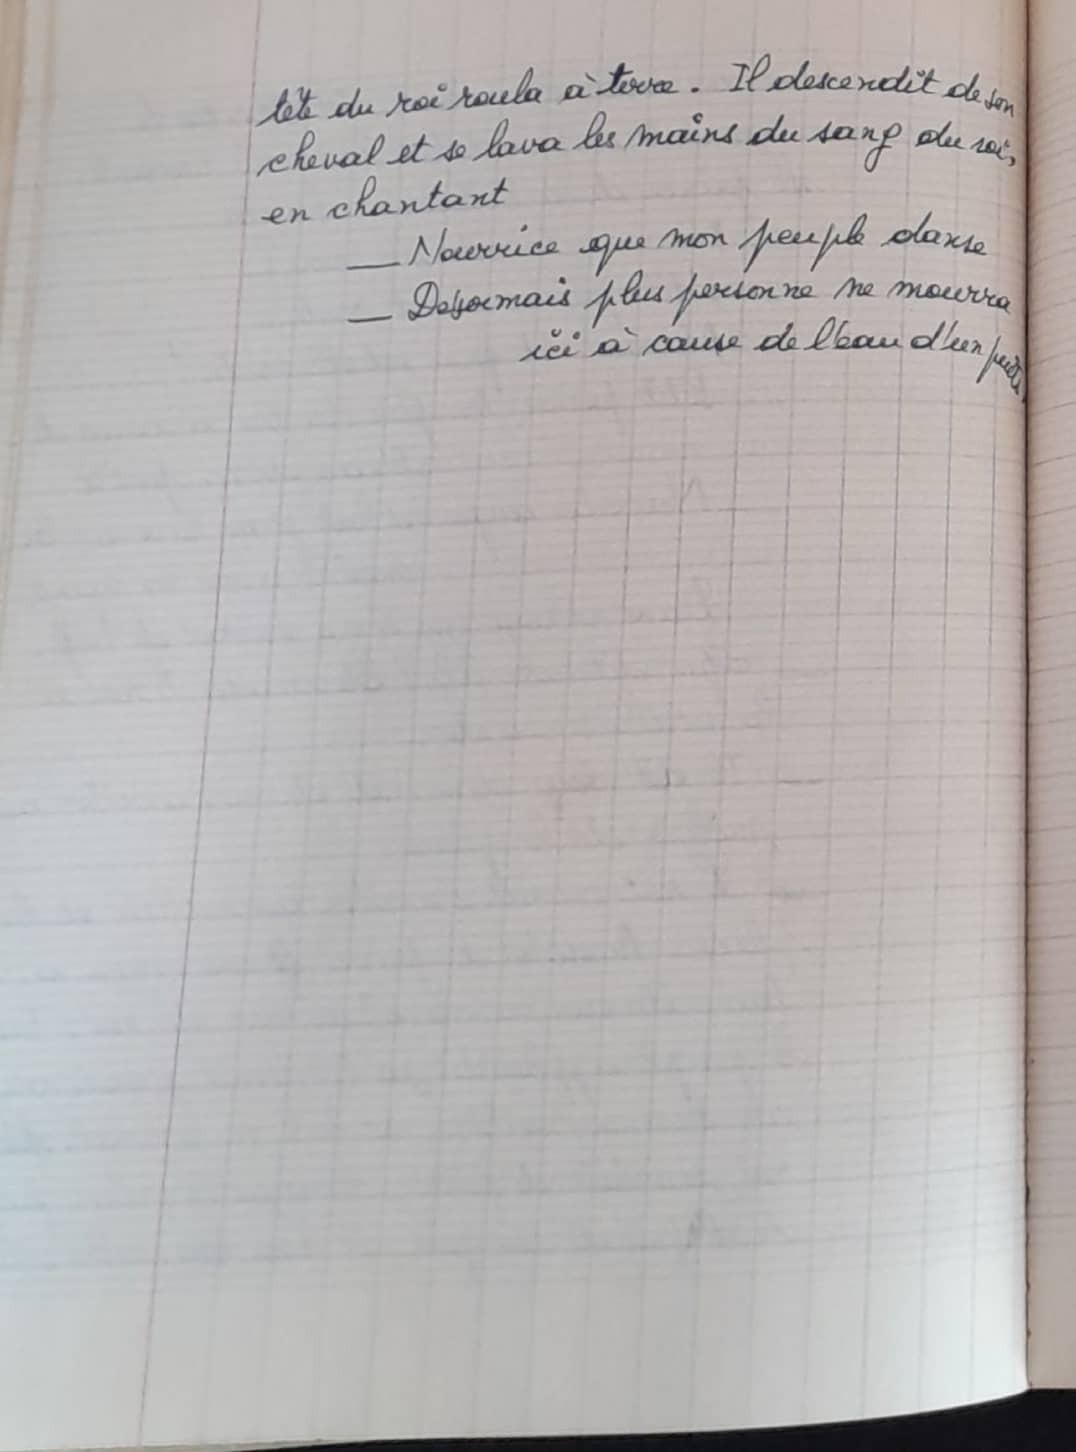 tête du roi roula à terre. Il descendit de son
cheval et se lava les mains du sang du roi,
en chantant
— Nourrice que mon peuple danse
— Desormais plus personne ne mourra
ici à cause de l'eau d'un puits.